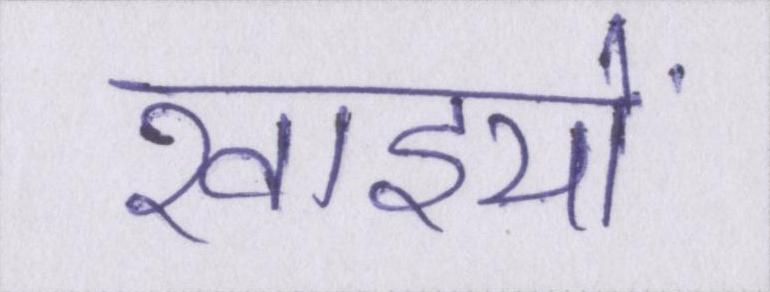 खाइयों